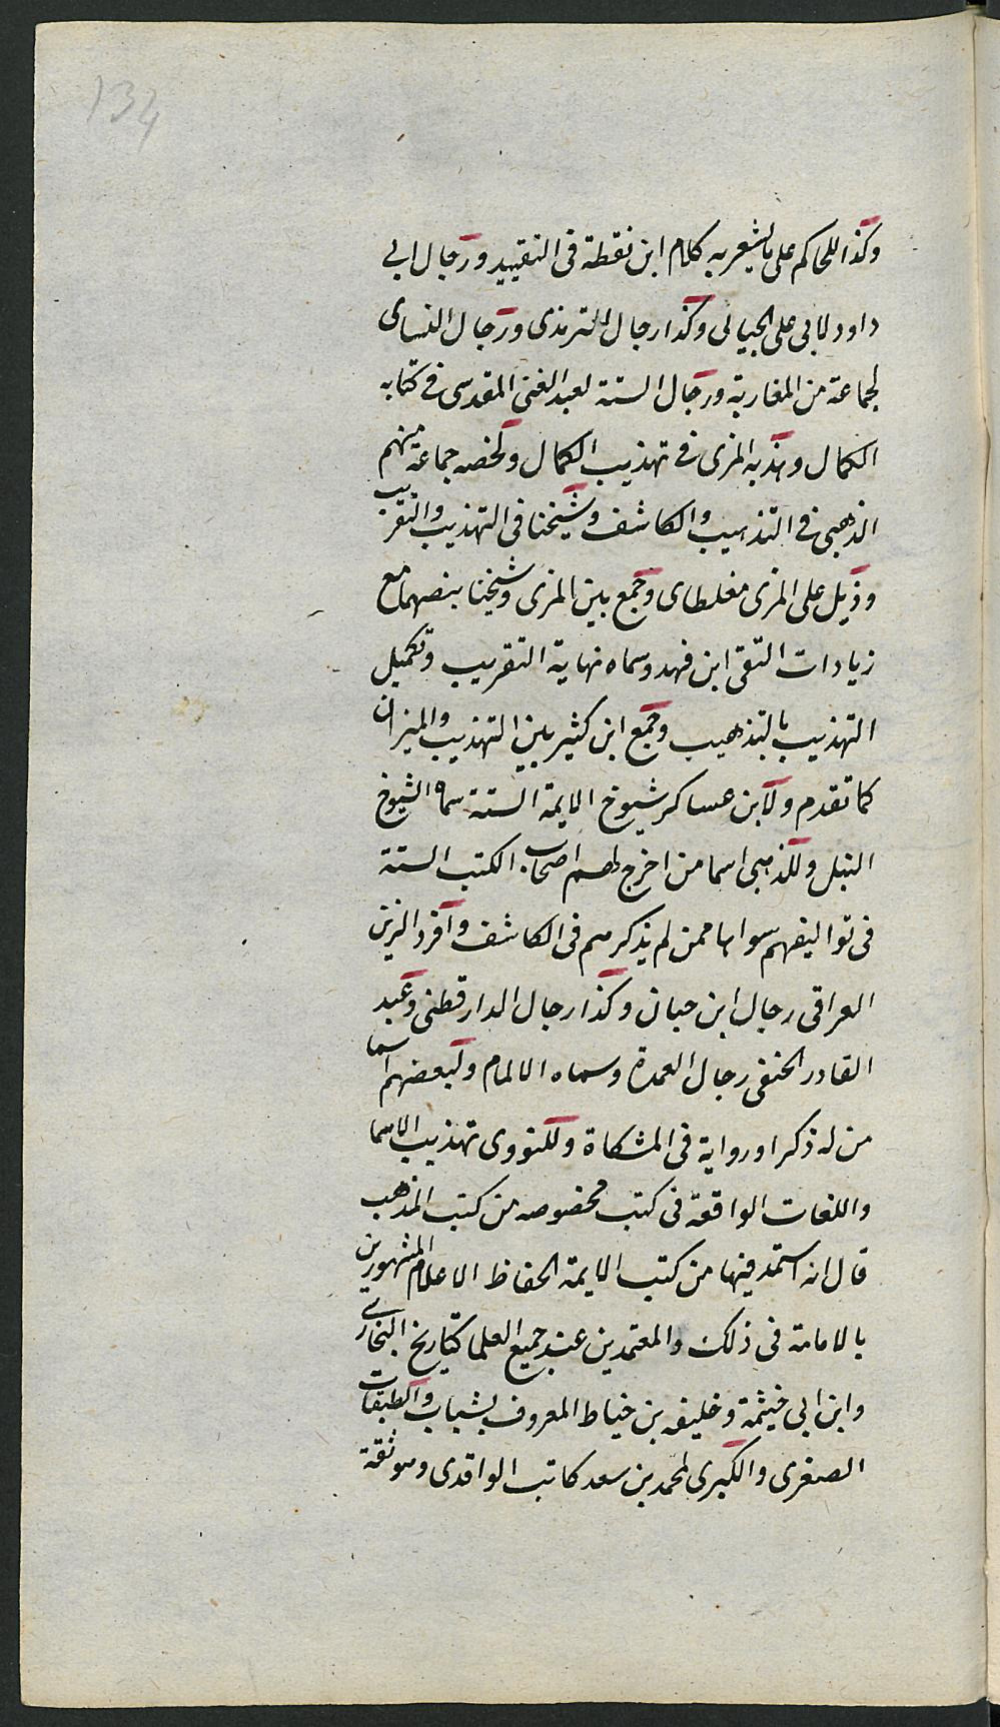 134
وكذا للحاكم على ما يشعر به كلام ابن نقطة فى التقييد ورجال ابى
داود لابى على الجيانى وكذا رجال الترمذى ورجال النساى
لجماعة من المغاربة ورجال الستة لعبد الغنى المقدسى فى كتابه
الكمال وهذبه المزى فى تهذيب الكمال ولخصه جماعة منهم
الذهبى فى التذهيب والكاشف وشيخنا فى التهذيب والتقريب
وذيل على المزى مغلطاى وجمع بين المزى وشيخنا بنصهما مع
زيادات التقى ابن فهد وسماه نهاية التقريب وتكميل
التهذيب بالتذهيب وجمع ابن كثير بين التهذيب والميزان
كما تقدم ولابن عساكر شيوخ الايمة الستة سماه الشيوخ
النبل وللذهبى اسما من اخرج لهم اصحاب الكتب الستة
فى تواليفهم سواها ممن لم يذكرهم فى الكاشف وافرد الزين
العراقى رجال ابن حبان وكذا رجال الدارقطنى وعبد
القادر الحنفى رجال العمدة وسماه الالمام ولبعضهم اسما
من له ذكر او رواية فى المشكاة وللنووى تهذيب الاسما
واللغات الواقعة فى كتب مخصوصه من كتب المذهب
قال انه استمد فيها من كتب الايمة الحفاظ الاعلام المشهورين
بالامامة فى ذلك والمعتمدين عند جميع العلما كتاريخ البخارى
وابن ابى خيثمة وخليفه بن خياط المعروف بشباب والطبقات
الصغرى والكبرى لمحمد بن سعد كاتب الواقدى وهو ثقة